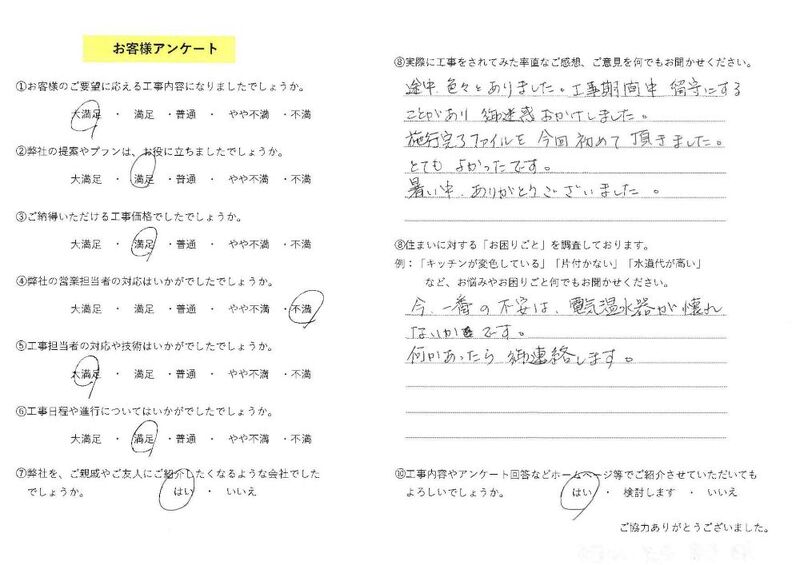 お客様アンケート
①お客様のご要望に応える工事内容になりましたでしょうか。
大満足 ・ 満足 ・普通 ・ やや不満 ・不満
②弊社の提案やプランは、お役に立ちましたでしょうか。
大満足 ・ 満足 ・普通 ・ やや不満 ・不満
③ご納得いただける工事価格でしたでしょうか。
大満足 ・ 満足 ・普通 ・ やや不満 ・不満
④弊社の営業担当者の対応はいかがでしたでしょうか。
大満足 ・ 満足 ・普通 ・ やや不満 ・不満
⑤工事担当者の対応や技術はいかがでしたでしょうか。
大満足 ・ 満足 ・普通 ・ やや不満 ・不満
⑥工事日程や進行についてはいかがでしたでしょうか。
大満足 ・ 満足 ・普通 ・ やや不満 ・不満
⑦弊社を、ご親戚やご友人にご紹介したくなるような会社でした
でしょうか。 はい ・ いいえ
⑧実際に工事をされてみた率直なご感想、ご意見を何でもお聞かせください。
途中、色々とありました。工事期間中 留守にする
ことがあり 御迷惑おかけしました。
施行完了ファイルを 今回 初めて 頂きました。
とても よかったです。
暑い中、ありがとうございました。
⑧住まいに対する「お困りごと」を調査しております。
例：「キッチンが変色している」「片付かない」「水道代が高い」
など、お悩みやお困りごと何でもお聞かせください。
今、一番の不安は、電気温水器が壊れ
ないかです。
何かあったら 御連絡します。
⑩工事内容やアンケート回答などホームページ等でご紹介させていただいても
よろしいでしょうか。 はい ・ 検討します ・ いいえ
ご協力ありがとうございました。